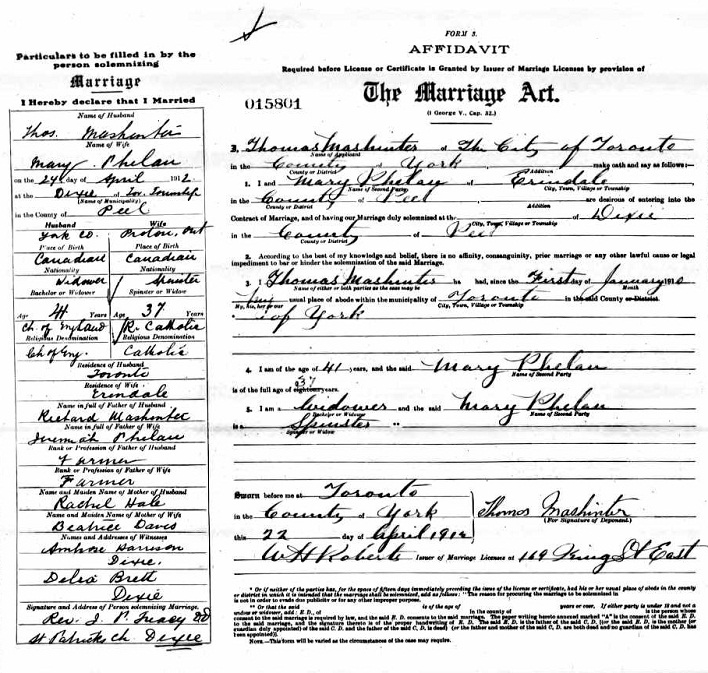 Particulars to be filled in by the
person solemnizing
Marriage
I Hereby declare that I Married
Name of Husband
Thos. Mashinter
Name of Wife
Mary Phelan
on the 24 day of April 1912
at the Dixie of Tor. Township
(Name of Municipality)
in the County of Peel
Husband Wife
York Co. Proton, Ont
Place of Birth Place of Birth
Canadian Canadian
Nationality Nationality
Widower Spinster
Bachelor or Widower Spinster or Widow
Age 41 Years Age 37 Years
Ch. of England R. Catholic
Religious Denomination Religious Denomination
Ch of Eng. Catholic
Residence of Husband
Toronto
Residence of Wife
Erindale
Name in full of Father of Husband
Richard Mashinter
Name in full of Father of Wife
Jeremiah Phelan
Rank or Profession of Father of Husband
Farmer
Rank or Profession of Father of Wife
Farmer
Name and Maiden Name of Mother of Husband
Rachel Hale
Name and Maiden Name of Mother of Wife
Beatrice Davis
Names and Addresses of Witnesses
Ambrose Harrison
Dixie.
Delia Brett
Dixie
Signature and Address of Person solemnizing Marriage.
Rev. J. P. Treacy DD
St Patricks Ch. Dixie
FORM 3.
AFFIDAVIT
Required before License or Certificate is Granted by Issuer of Marriage Licenses by provision of
015801
The Marriage Act.
(1 George V., Cap. 32.)
I, Thomas Mashinter of The City of Toronto
Name of Applicant Addition
in the County of York make oath and say as follows:—
County or District
1. I and Mary Phelan of Erindale
Name of Second Party City, Town, Village or Township
in the County of Peel are desirous of entering into the
County or District Addition
Contract of Marriage, and of having our Marriage duly solemnized at the of Dixie
City, Town, Village or Township
in the County of Peel
County or District
2. According to the best of my knowledge and belief, there is no affinity, consanguinity, prior marriage or any other lawful cause or legal
impediment to bar or hinder the solemnization of the said Marriage.
3. I Thomas Mashinter has had, since the First day of January 1910
Name of either or both parties as the case may be Month
my usual place of abode within the municipality of Toronto in the said County or District
My, his, her or our City, Town, Village or Township
of York
4. I am of the age of 41 years, and the said Mary Phelan
Name of Second Party
37
is of the full age of eighteen years.
5. I am a Widower and the said Mary Phelan
Bachelor or Widower Name of Second Party
is a Spinster "
Spinster or Widow
Sworn before me at Toronto
in the County of York
this 22 day of April 1912
Thomas Mashinter
(For Signature of Deponent.)
W H Roberts Issuer of Marriage Licenses at 169 King St East
* Or if neither of the parties has, for the space of fifteen days immediately preceding the issue of the license or certificate, had his or her usual place of abode in the county
or district in which it is intended that the marriage shall be solemnized, add as follows: "The reason for procuring the marriage to be solemnized in
is not in order to evade due publicity or for any other improper purpose.
** Or that the said is of the age of years or over. If either party is under 18 and not a
widow or widower, add: E. D., of in the county of is the person whose
consent to the said marriage is required by law, and the said E. D. consents to the said marriage. The paper writing hereto annexed marked "A" is the consent of the said E. D.
to the said marriage, and the signature thereto is of the proper handwriting of E. D. The said E. D. is the father of the said C. D. (or the said E. D. is the mother (or
guardian duly appointed) of the said C. D. and the father of the said C. D. is dead) (or the father and mother of the said C. D. are both dead and no guardian of the said C. D. has
been appointed)).
NOTE.—This form will be varied as the circumstances of the case may require.